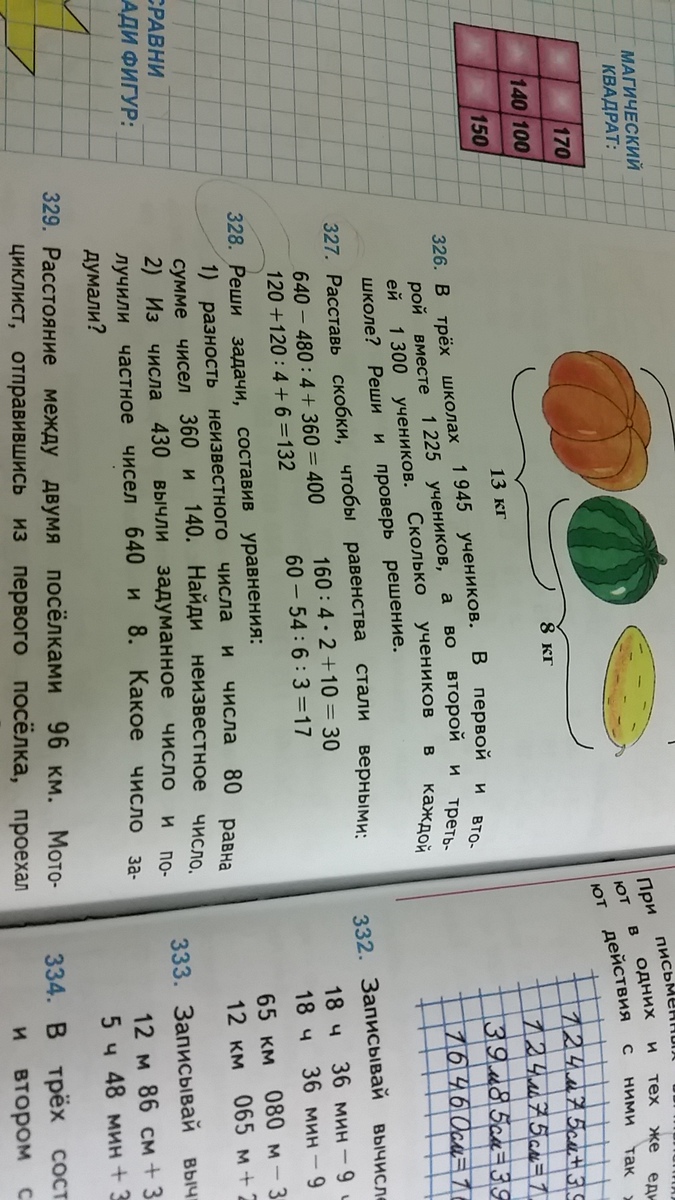 МАГИЧЕСКИЙ
КВАДРАТ:
170
140 100
150
СРАВНИ
ФИГУР:
13 кг
8 кг
326. В трёх школах 1 945 учеников. В первой и вто-
рой вместе 1 225 учеников, а во второй и треть-
ей 1 300 учеников. Сколько учеников в каждой
школе? Реши и проверь решение.
327. Расставь скобки, чтобы равенства стали верными:
640 − 480 : 4 + 360 = 400 160 : 4 · 2 + 10 = 30
120 + 120 : 4 + 6 = 132 60 − 54 : 6 : 3 = 17
328. Реши задачи, составив уравнения:
1) разность неизвестного числа и числа 80 равна
сумме чисел 360 и 140. Найди неизвестное число.
2) Из числа 430 вычли задуманное число и по-
лучили частное чисел 640 и 8. Какое число за-
думали?
329. Расстояние между двумя посёлками 96 км. Мото-
циклист, отправившись из первого посёлка, проехал
При письменных
ют в одних и тех же ед
ют действия с ними так
124м75см+39
124м75см=1
39м85см=39
16460см=1
332. Записывай вычисле
18 ч 36 мин − 9 ч
18 ч 36 мин − 9
65 км 080 м − 3
12 км 065 м + 2
333. Записывай выч
12 м 86 см + 3
5 ч 48 мин + 3
334. В трёх сост
и втором с